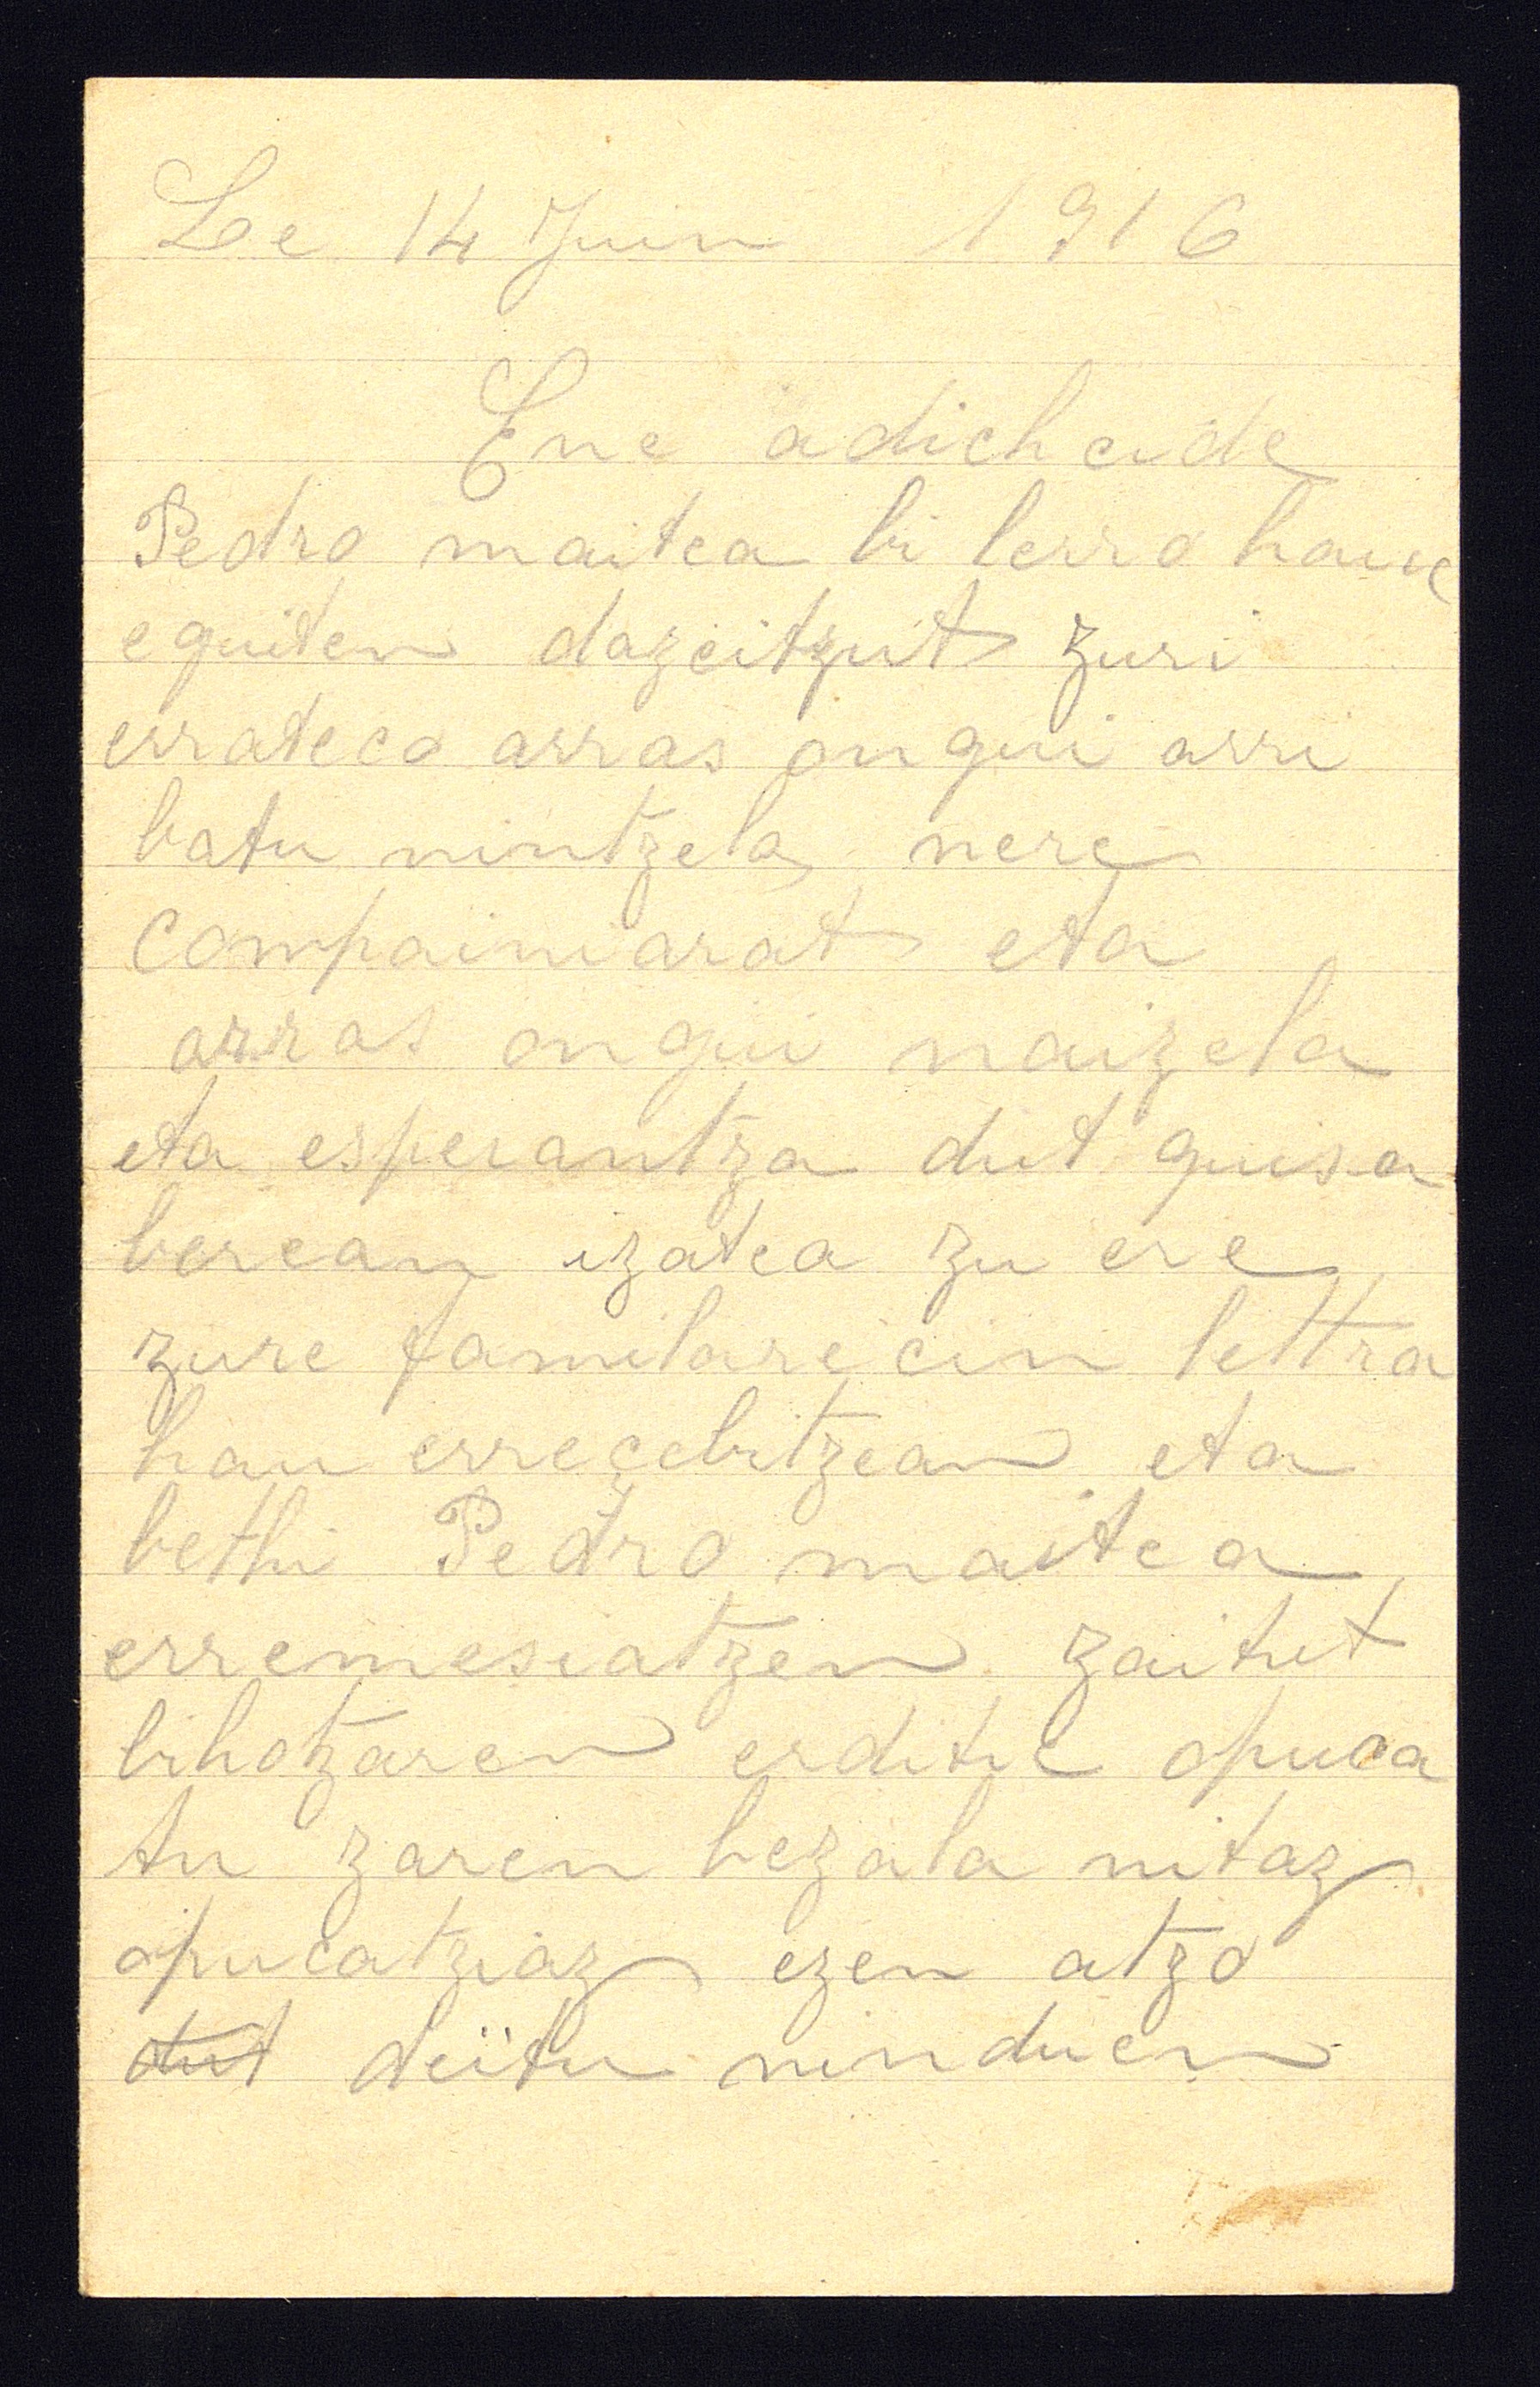 Le 14 Juin 1916
Ene adichcide
Pedro maitea bi lerro hauc
eguiten dazcitzut zuri
errateco arras ongui arri
batu nintzela nere
compainiarat eta
arras ongui naizela
eta esperantza dut guisa
berean izatea zu ere
zure familarecin lettra
hau erreçebitzean eta
bethi Pedro maitea
erremesiatzen zaitut
bihotzaren erditic opuca
tu zaren bezala nitaz
opucatziaz ezen atzo
dut deïtu ninduen